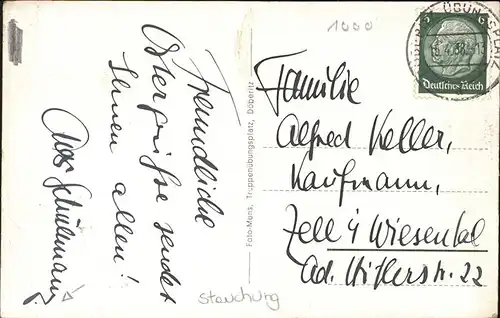 Freundliche
Ostergrüße sendet
Ihnen allen!
Foto-Mens, Truppenübungsplatz, Döberitz
1000
ÜBUNGSPL
6 6
4.38
Deutsches Reich
Familie
Alfred Keller,
Kaufmann,
Zell i Wiesental
Ad. Hitlerstr. 22
Stauchung